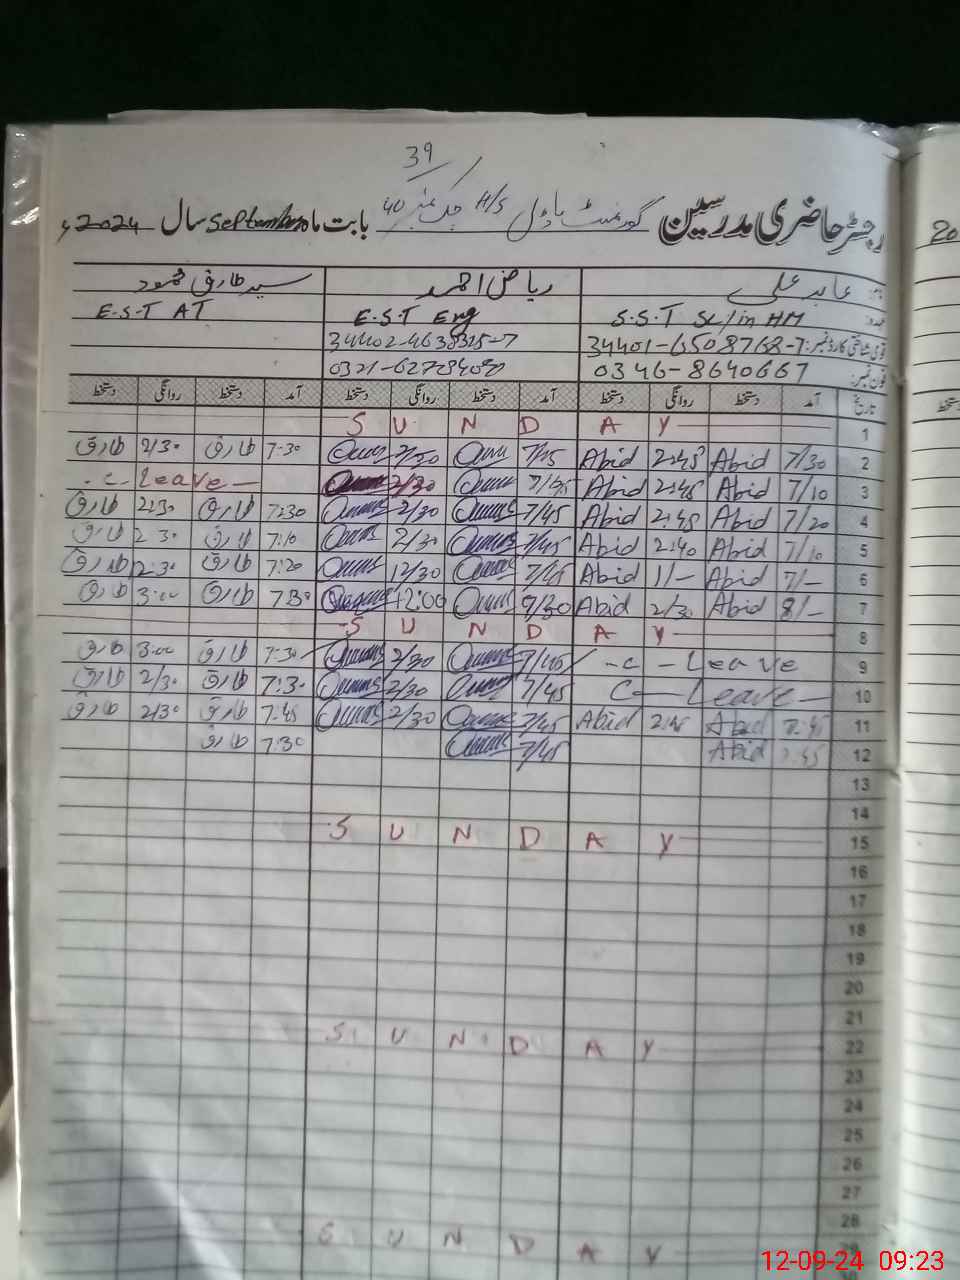 39
رجسٹر حاضری مدرسین گورنمنٹ ماڈل H/S چک نمبر 40 بابت ماہ September سال 2024ء
نام: عابد علی ریاض احمد سید طارق محمود
عہدہ: S.S.T Sc/in HM E.S.T Eng E.S.T AT
قومی شناختی کارڈ نمبر: 34401-6508768-7
فون نمبر: 0346-8640667
تاریخ آمد دستخط روانگی دستخط آمد دستخط روانگی دستخط آمد دستخط روانگی دستخط
1 SUNDAY
2 7/30 Abid 2:45 Abid 7/45 2/30 7:30 طارق 2/30 طارق
3 7/10 Abid 2:45 Abid 7/45 2/30 -C- Leave-
4 7/20 Abid 2:45 Abid 7/45 2/30 7:30 طارق 2:30 طارق
5 7/10 Abid 2:40 Abid 7/45 2/30 7:10 طارق 2:30 طارق
6 7/- Abid 1/- Abid 7/45 12/30 7:20 طارق 12:30 طارق
7 8/- Abid 2/30 Abid 2:00 7:30 طارق 3:00 طارق
8 SUNDAY
9 -C- Leave 7/45 2/30 7:30 طارق 3:00 طارق
10 C- Leave- 7/45 2/30 7:30 طارق 2/30 طارق
11 7:45 Abid 2:45 Abid 7/45 2/30 7:45 طارق 2/30 طارق
12 7:45 Abid 7/45 7:30 طارق
13
14
15 SUNDAY
16
17
18
19
20
21
22 SUNDAY
23
24
25
26
27
28
29 SUNDAY
20
دستخط
12-09-24 09:23